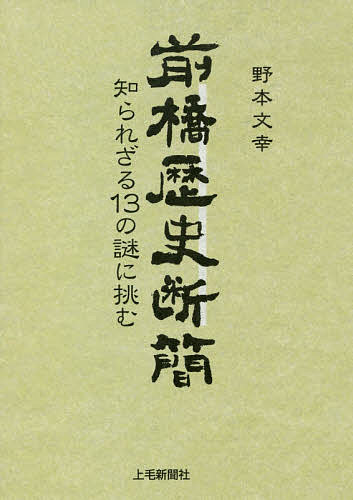 野本文幸
前橋歴史断簡
知られざる13の謎に挑む
上毛新聞社